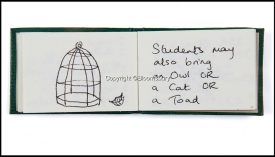 Students may
also bring
an Owl OR
a Cat OR
a Toad
Copyright ©Bloomsbury